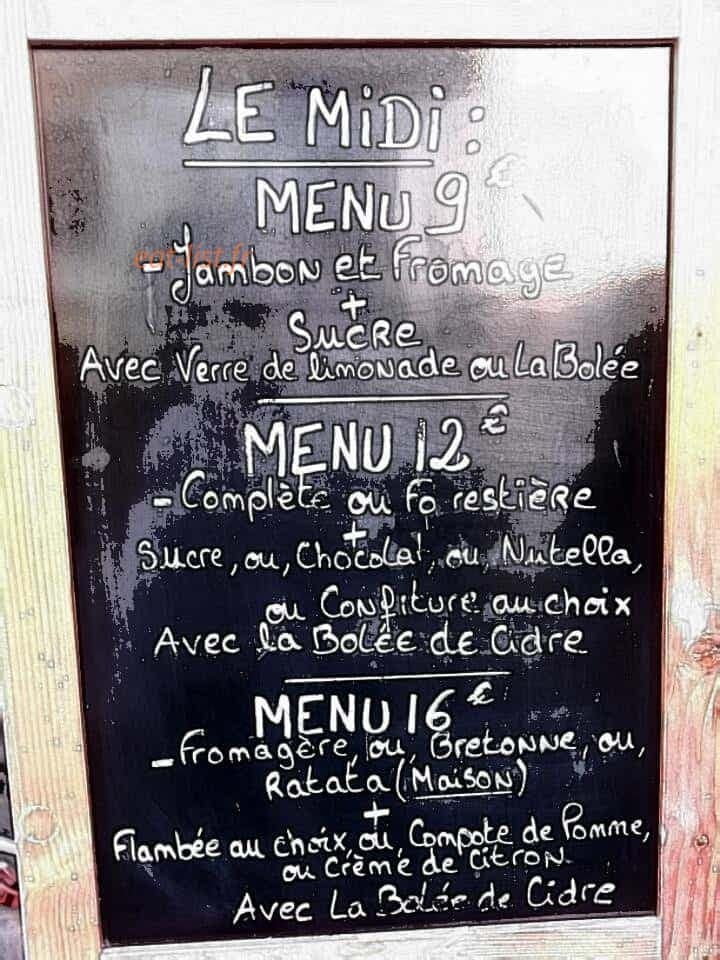 LE MiDi :
MENU 9 €
eat-list.fr
- Jambon et Fromage
+
SUCRE
Avec Verre de limonade ou La Bolée
MENU 12 €
- Complète ou Fo restière
+
Sucre, ou, Chocolat, ou, Nutella,
ou Confiture au choix
Avec la Bolée de Cidre
MENU 16 €
- Fromagère, ou, Bretonne, ou,
Ratata (Maison)
+
Flambée au choix, ou, Compote de Pomme,
ou Crème de Citron
Avec La Bolée de Cidre